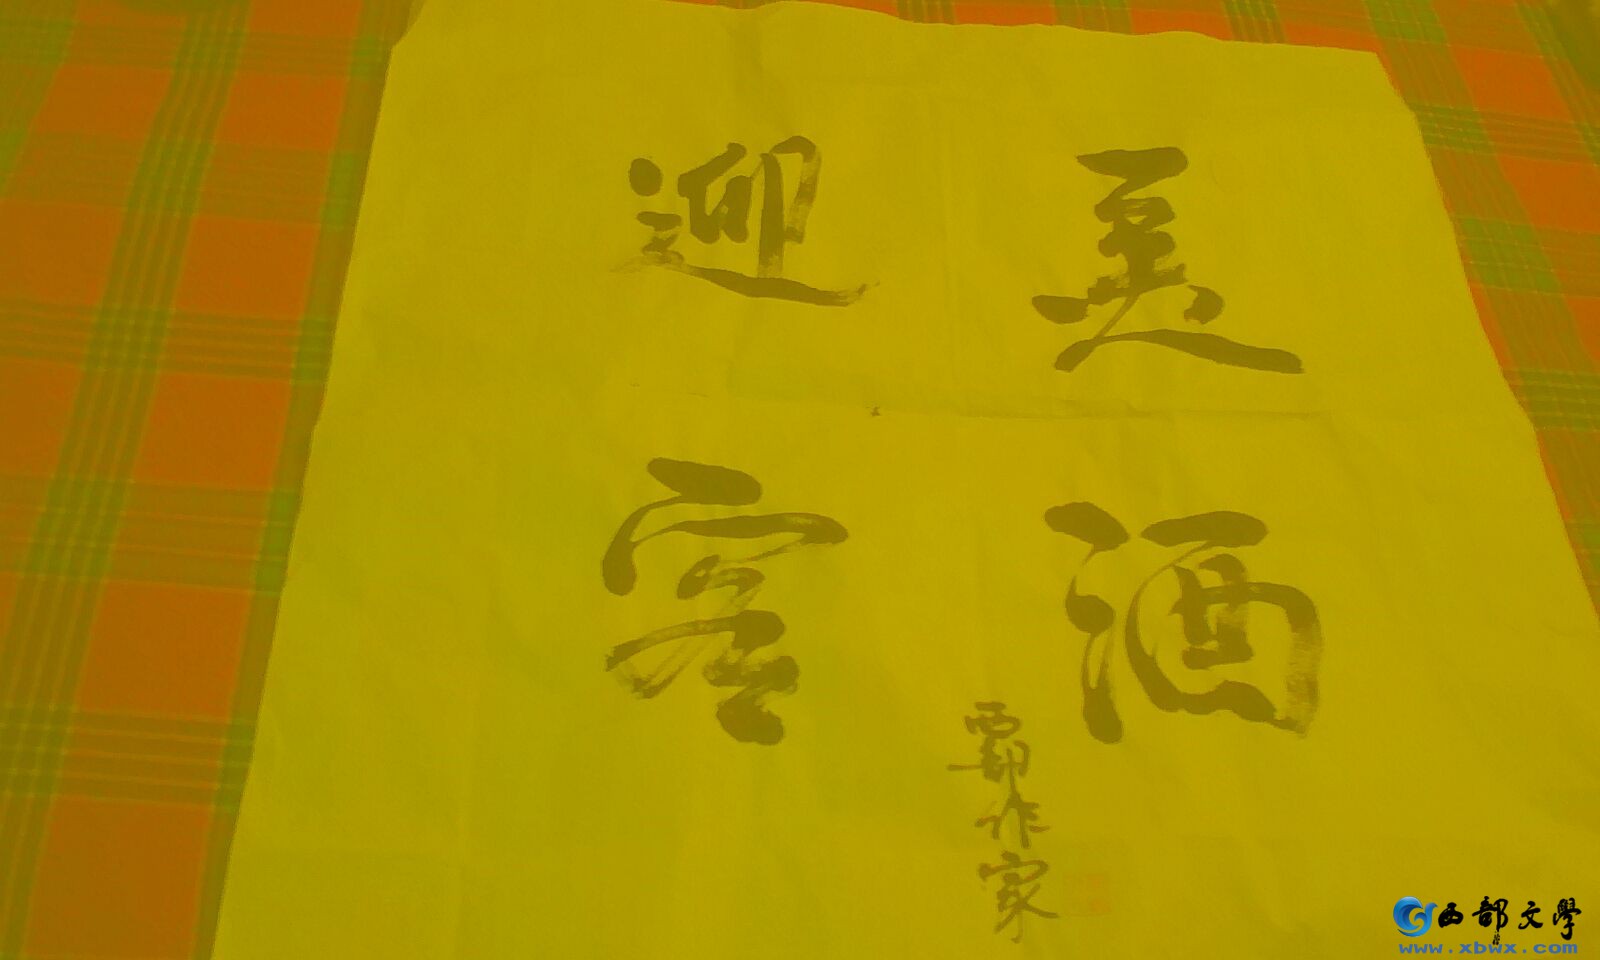 美酒
迎客
西部作家
西部文學
www.xbwx.com